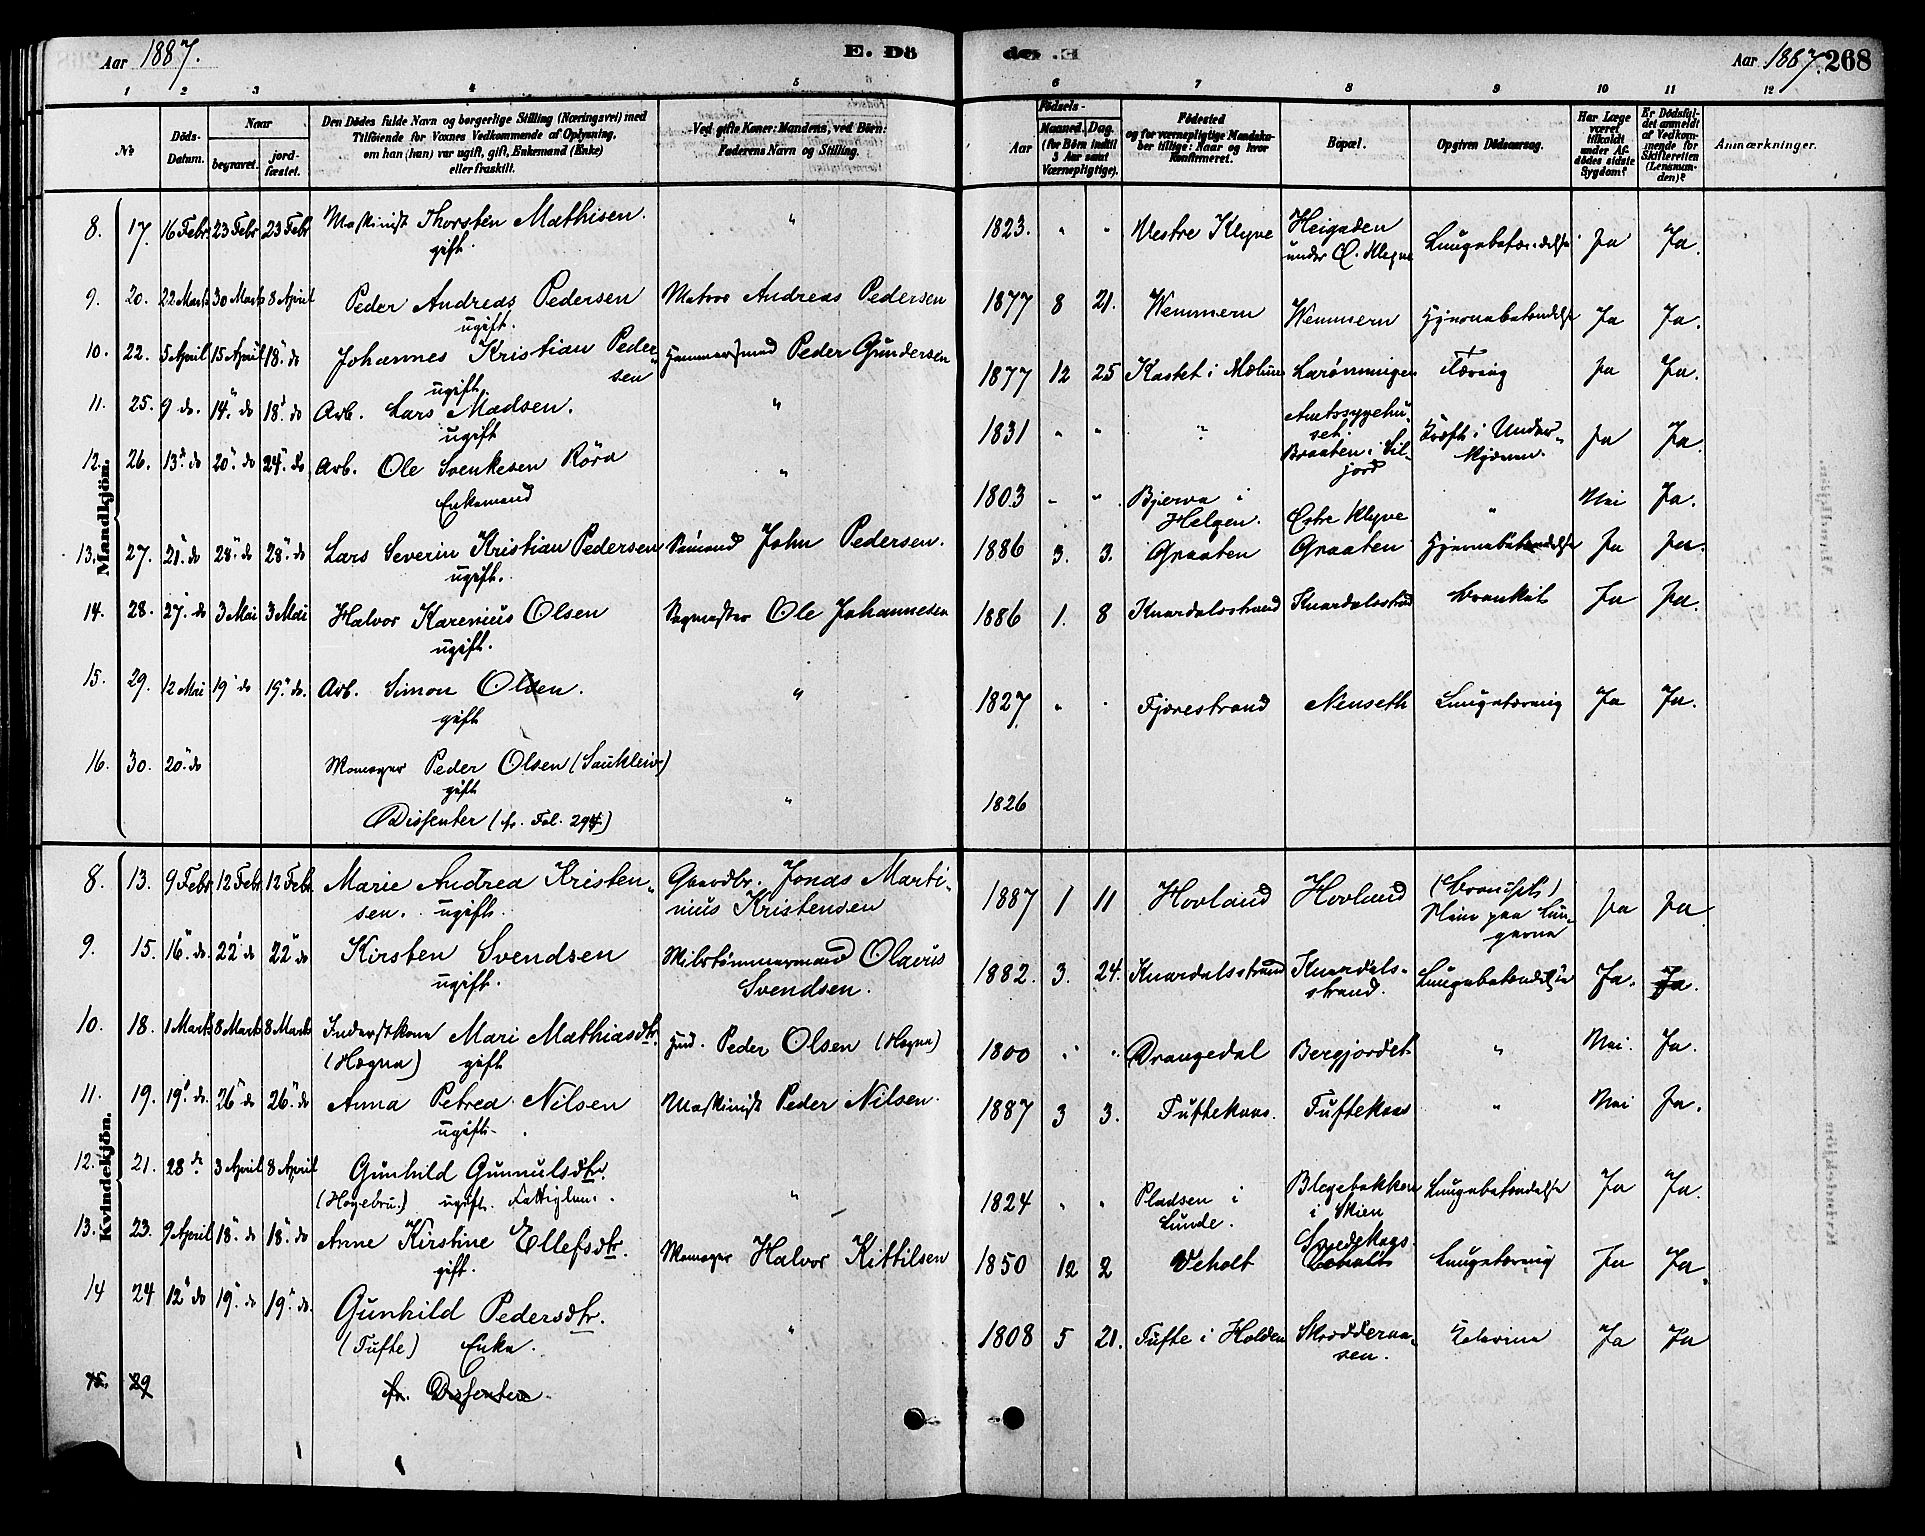 Aar 1887.
E. Dö
de. E
Aar 1887. 268
1 2 3 4 5
6 7 8 9 10 11 12
No
Döds-
Datum.
Naar
begravet.
jord-
fæstet.
Den Dödes fulde Navn og borgerlige Stilling (Næringsvei) med
Tilföiende for Voxnes Vedkommende af Oplysning,
om han (hun) var ugift, gift, Enkemand (Enke)
eller fraskilt.
Ved gifte Koner: Mandens, ved Börn:
Faderens Navn og Stilling.
Födsels-
Aar
Maaned. Dag.
(for Börn indtil
3 Aar samt
Værnepligtige).
Födested
og for værnepligtige Mandska-
ber tillige: Naar og hvor
Konfirmeret.
Bopæl.
Opgiven Dödsaarsag.
Har Læge
været
tilkaldt
under Af-
dödes sidste
Sygdom?
Er Dödsfal-
det anmeldt
af Vedkom-
mende for
Skifteretten
(Lensman-
den)?
Anmærkninger.
Mandkjön.
8. 17. 16 Febr 23 Febr 23 Febr Maskinist Thorsten Mathisen. gift " 1823. " " Vestre Klyve Heigaden under Ö. Klyve Lungebetændelse Ja Ja.
9. 20. 22 Marts 30 Marts 8 April Peder Andreas Pedersen ugift. Matros Andreas Pedersen 1877 8 21. Wemmern Wemmern Hjernebetændelse Ja Ja.
10. 22. 5 April 15 April 18. do Johannes Kristian Peder-sen ugift. Hammersmed Peder Gundersen 1877 12 25 Kastet i Mælum Larönningen Tæring Ja Ja.
11. 25. 9 do. 14. do 18. do Arb. Lars Madsen. ugift " 1831 " " " Amtssygehu-set Braaten i Sil-jord Kræft i Under-kjæven. Ja Ja.
12. 26. 13. do 20. do 24. do Arb. Ole Svenkesen Röra Enkemand " 1803 " " Bjerva i Helgen. Östre Klyve " Nei Ja.
13. 27. 21. do 28. do 28. do Lars Severin Kristian Pedersen ugift. Sömand John Pedersen. 1886 3. 3. Graaten Graaten Hjernebetændelse Ja Ja.
14. 28. 27. do 3 Mai 3 Mai Halvor Karenius Olsen ugift. Sagmester Ole Johannesen 1886 1. 8 Knardalsstrand Knardalsstrand Bronkit Ja Ja.
15. 29. 12 Mai 19. do 19. do. Arb. Simon Olsen. gift " 1827. " " Fjærestrand Nenseth Lungetæring Ja Ja.
16. 30. 20. do Peder Olsen (Saukleiv) gift " 1826
Dissenter (fr. Fol. 294)
Kvindekjön.
8. 13. 9 Febr 12 Febr 12 Febr. Marie Andrea Kristen-sen. ugift. Gaardbr. Jonas Marti-nius Kristensen 1887 1 11 Hovland Hovland Slim paa Lun-gerne Ja Ja
9. 15. 16. do. 22 do 22 do Kirsten Svendsen ugift. Olavus Svendsen. 1882. 3. 24. Knardalsstrand Knardals-strand. Lungebetændelse Ja. Ja.
10. 18. 1 Marts 8 Marts 8 Marts Inderstkone Mari Mathiasdtr. (Hægna) gift Hmd. Peder Olsen (Hægna) 1800 " " Drangedal Bergjordet " Nei. Ja.
11. 19. 19. do. 26. do 26. do Anna Petrea Nilsen ugift. Maskinist Peder Nilsen. 1887 3 3. Tuftekaas. Tuftekaas " Nei Ja.
12. 21. 28 do. 3 April 8 April Gunhild Gunnulsdtr. (Hogebru.) ugift. Fattiglem. " 1824 " " Pladsen i Lunde. Blegebakken i Skien Lungebetændelse Ja Ja.
13. 23. 9 April 18. do 18. do Anne Kirstine Ellefsdtr. gift. Halvor Kittilsen 1850 12 2 Veholt Lungetæring Ja Ja.
14 24 12. do 19. do 19. do. Gunhild Pedersdtr. (Tufte) Enke. " 1808 5 21. Tufte i Holden Skrædderaa-sen. Ja Ja
15. 29 fr. Dissentere.